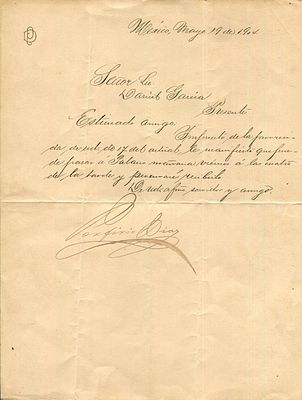 México, Mayo 19 de 19
Señor Lic
Daniel García
Presente
Estimado amigo:
Impuesto de la favore-
da de ud. de 17 del actual le manifiesto que pue-
de pasar a Palacio mañana viernes á las cuatro
de la tarde y procuraré recibirlo
De ud. afmo. servidor y amigo.
Porfirio Diaz